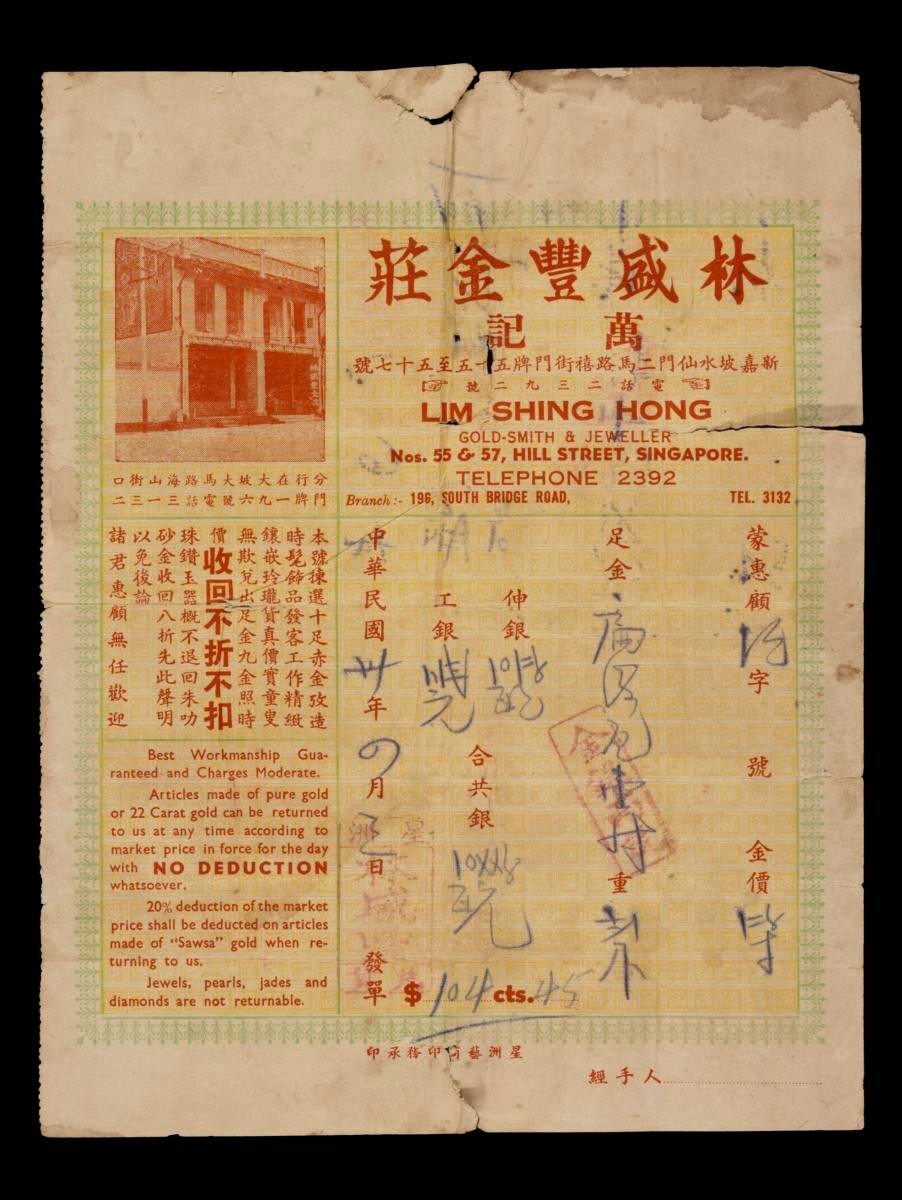 林盛豐金莊
萬記
新嘉坡水仙門二馬路禧街門牌五十五至五十七號
電話二三九二號
LIM SHING HONG
GOLD-SMITH & JEWELLER
Nos. 55 & 57, HILL STREET, SINGAPORE.
TELEPHONE 2392
Branch:- 196, SOUTH BRIDGE ROAD, TEL. 3132
分行在大坡大馬路海山街口
門牌一九六號電話三一三二
本號揀選十足赤金攷造
時髦飾品發客工作精緻
鑲嵌玲瓏貨真價實童叟
無欺兌出足金九金照時
價收回不折不扣
珠鑽玉器概不退回朱叻
砂金收回八折先此聲明
以免後論
諸君惠顧無任歡迎
Best Workmanship Gua-
ranteed and Charges Moderate.
Articles made of pure gold
or 22 Carat gold can be returned
to us at any time according to
market price in force for the day
with NO DEDUCTION
whatsoever.
20% deduction of the market
price shall be deducted on articles
made of "Sawsa" gold when re-
turning to us.
Jewels, pearls, jades and
diamonds are not returnable.
蒙惠顧 字 號 金價
足金 重
伸銀
工銀
合共銀
中華民國卅年 月 日 發單
$ 104 cts. 45
星洲藝 印務承印
經手人